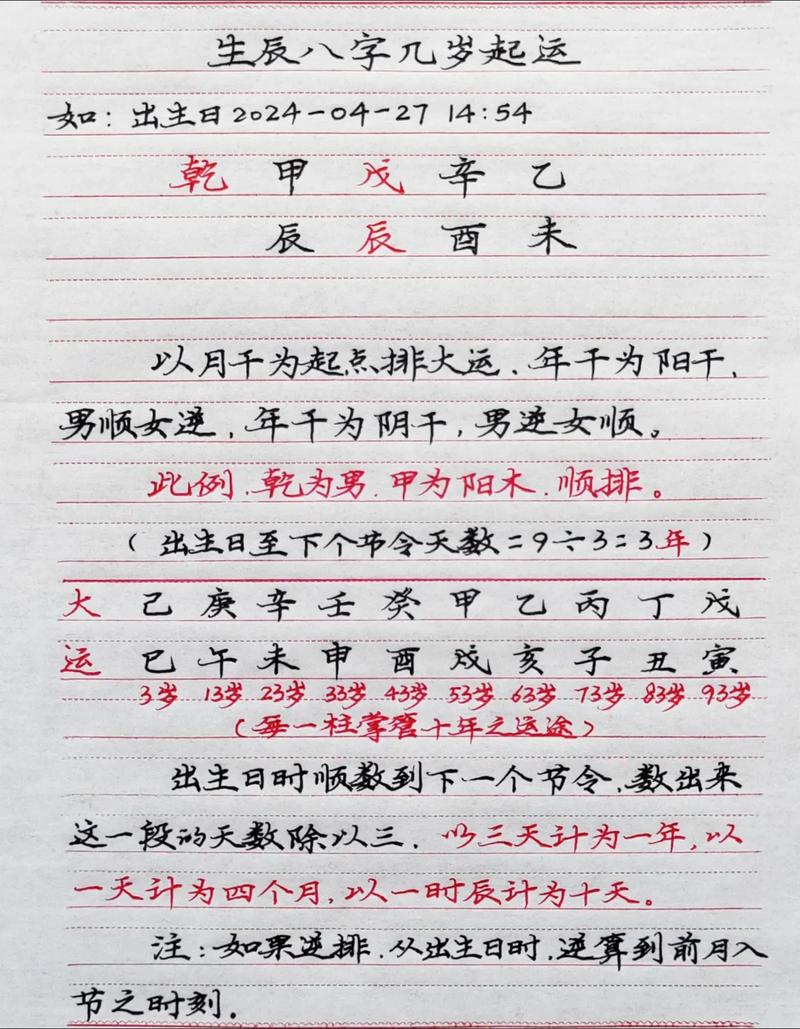 生辰八字几岁起运
如：出生日2024-04-27 14:54
乾 甲 戊 辛 乙
辰 辰 酉 未
以月干为起点排大运，年干为阳干，
男顺女逆，年干为阴干，男逆女顺。
此例，乾为男，甲为阳木，顺排。
（出生日至下个节令天数=9÷3=3年）
大 己 庚 辛 壬 癸 甲 乙 丙 丁 戊
运 巳 午 未 申 酉 戌 亥 子 丑 寅
3岁 13岁 23岁 33岁 43岁 53岁 63岁 73岁 83岁 93岁
（每一柱掌管十年之运途）
出生日时顺数到下一个节令，数出来
这一段的天数除以三，以三天计为一年，以
一天计为四个月，以一时辰计为十天。
注：如果逆排，从出生日时，逆算到前月入
节之时刻。